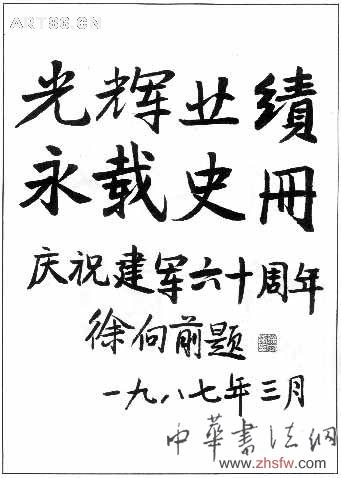 ART86.CN
光辉业績
永载史冊
庆祝建军六十周年
徐向前题
一九八七年三月
中華書法網
www.zhsfw.com